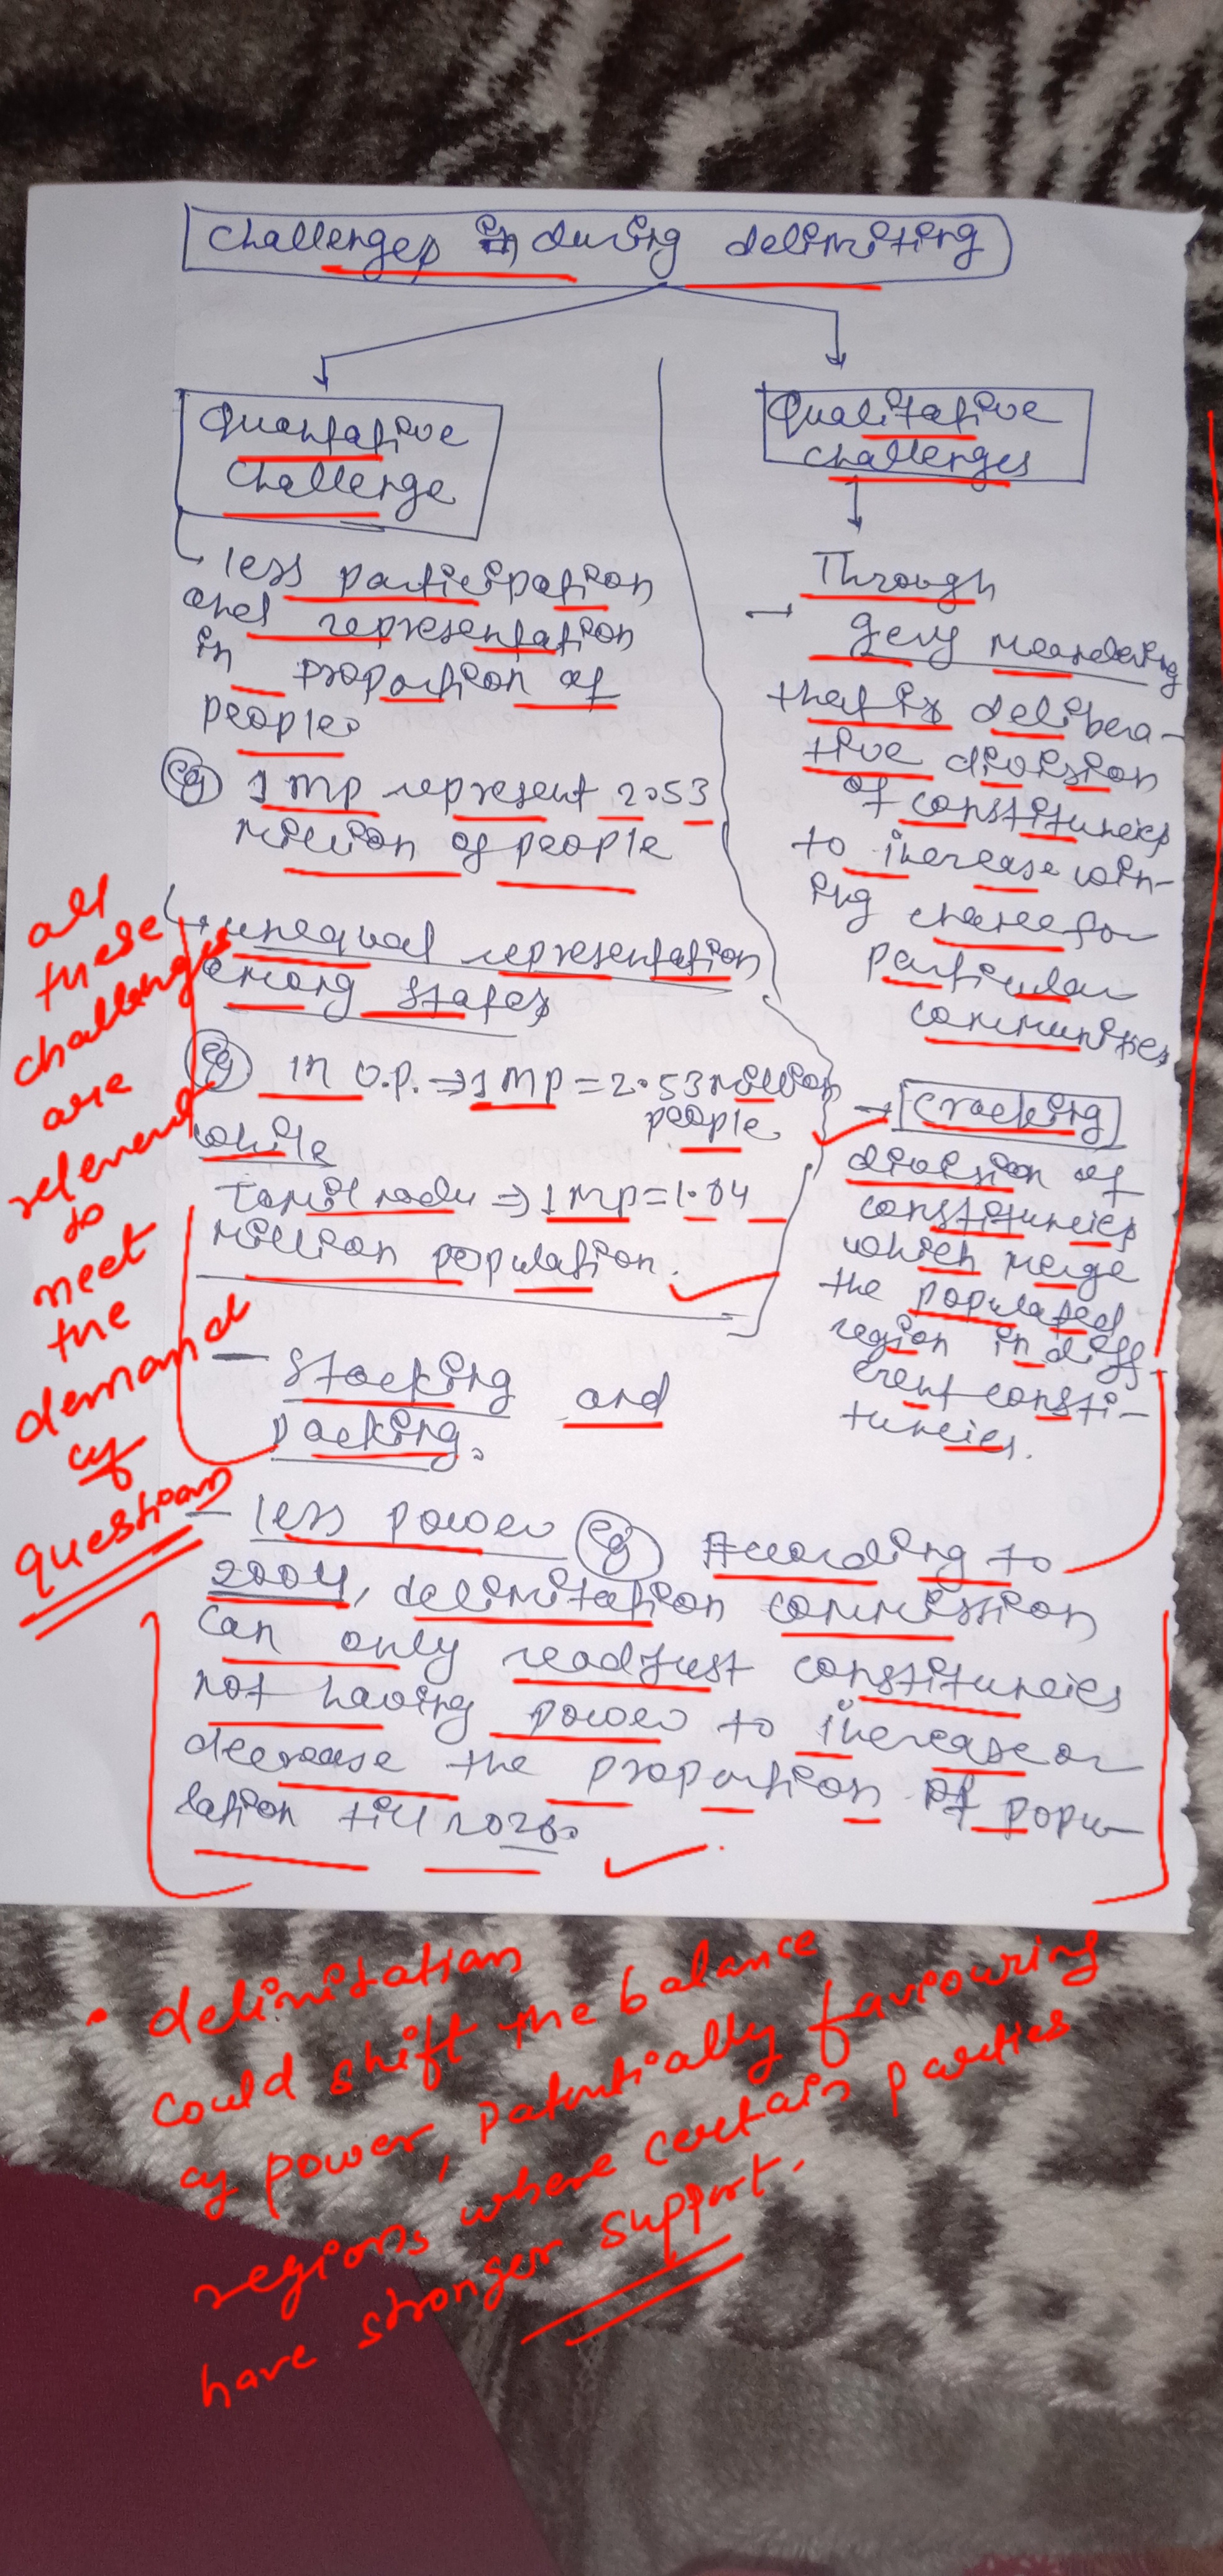 challenges in during delimiting
Quantative
Challenge
less participation
and representation
in proportion of
people.
eg 1 MP represent 2.53
million of people
unequal representation
among states
eg In U.P. ⇒ 1 MP = 2.53 million
people
while
Tamil nadu ⇒ 1 MP = 1.84
million population.
- Stacking and
packing.
Qualitative
challenges
Through
→ gerry meandering
that is delibera-
tive division
of constituncies
to increase win-
ing chance for
particular
communities
→ Cracking
division of
constituncies
which merge
the populated
region in diff-
erent consti-
tuncies.
- less power eg According to
2004, delimitation commission
can only readjust constituncies
not having power to increase or
decrease the proportion of popu-
lation till 2026.
all
these
challenges
are
relevent
to
meet
the
demand
of
question
• delimitation
could shift the balance
of power, potentially faviouring
regions where certain parties
have stronger support.